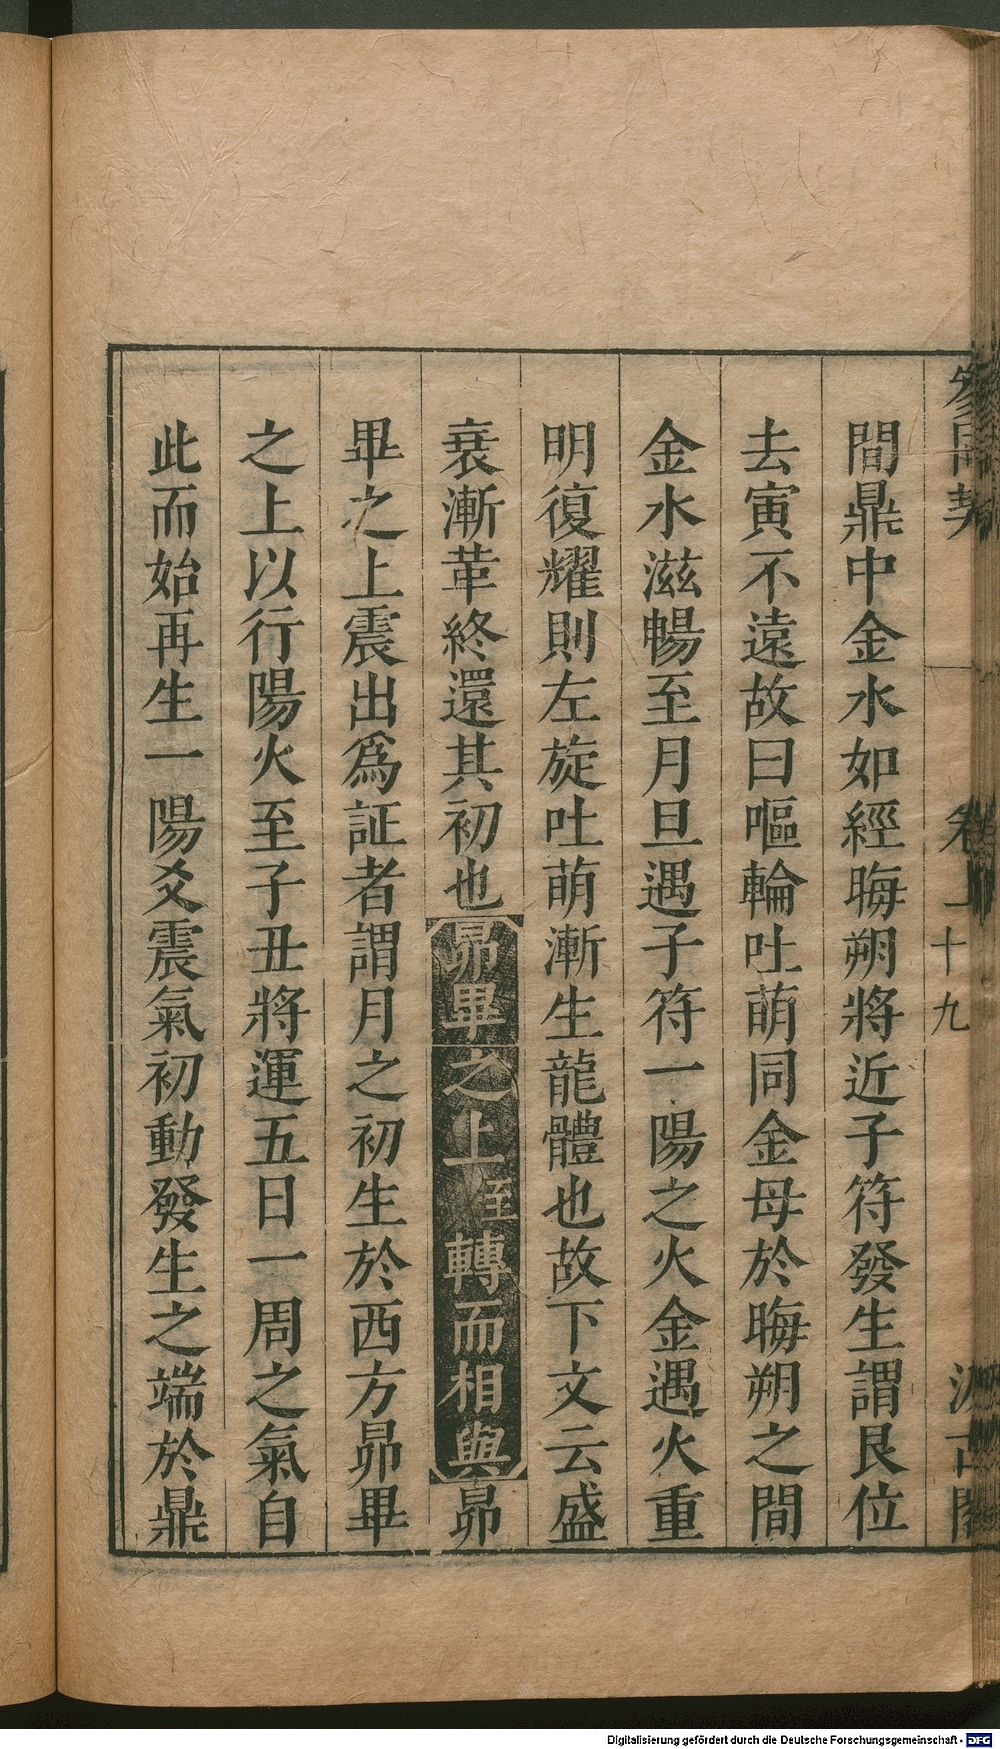 參同契 卷上 十九 汲古閣
間鼎中金水如經晦朔將近子符發生謂艮位
去寅不遠故曰嘔輪吐萌同金母於晦朔之間
金水滋暢至月旦遇子符一陽之火金遇火重
明復耀則左旋吐萌漸生龍體也故下文云盛
衰漸革終還其初也昴畢之上至轉而相與昴
畢之上震出爲証者謂月之初生於西方昴畢
之上以行陽火至子丑將運五日一周之氣自
此而始再生一陽爻震氣初動發生之端於鼎
Digitalisierung gefördert durch die Deutsche Forschungsgemeinschaft - DFG